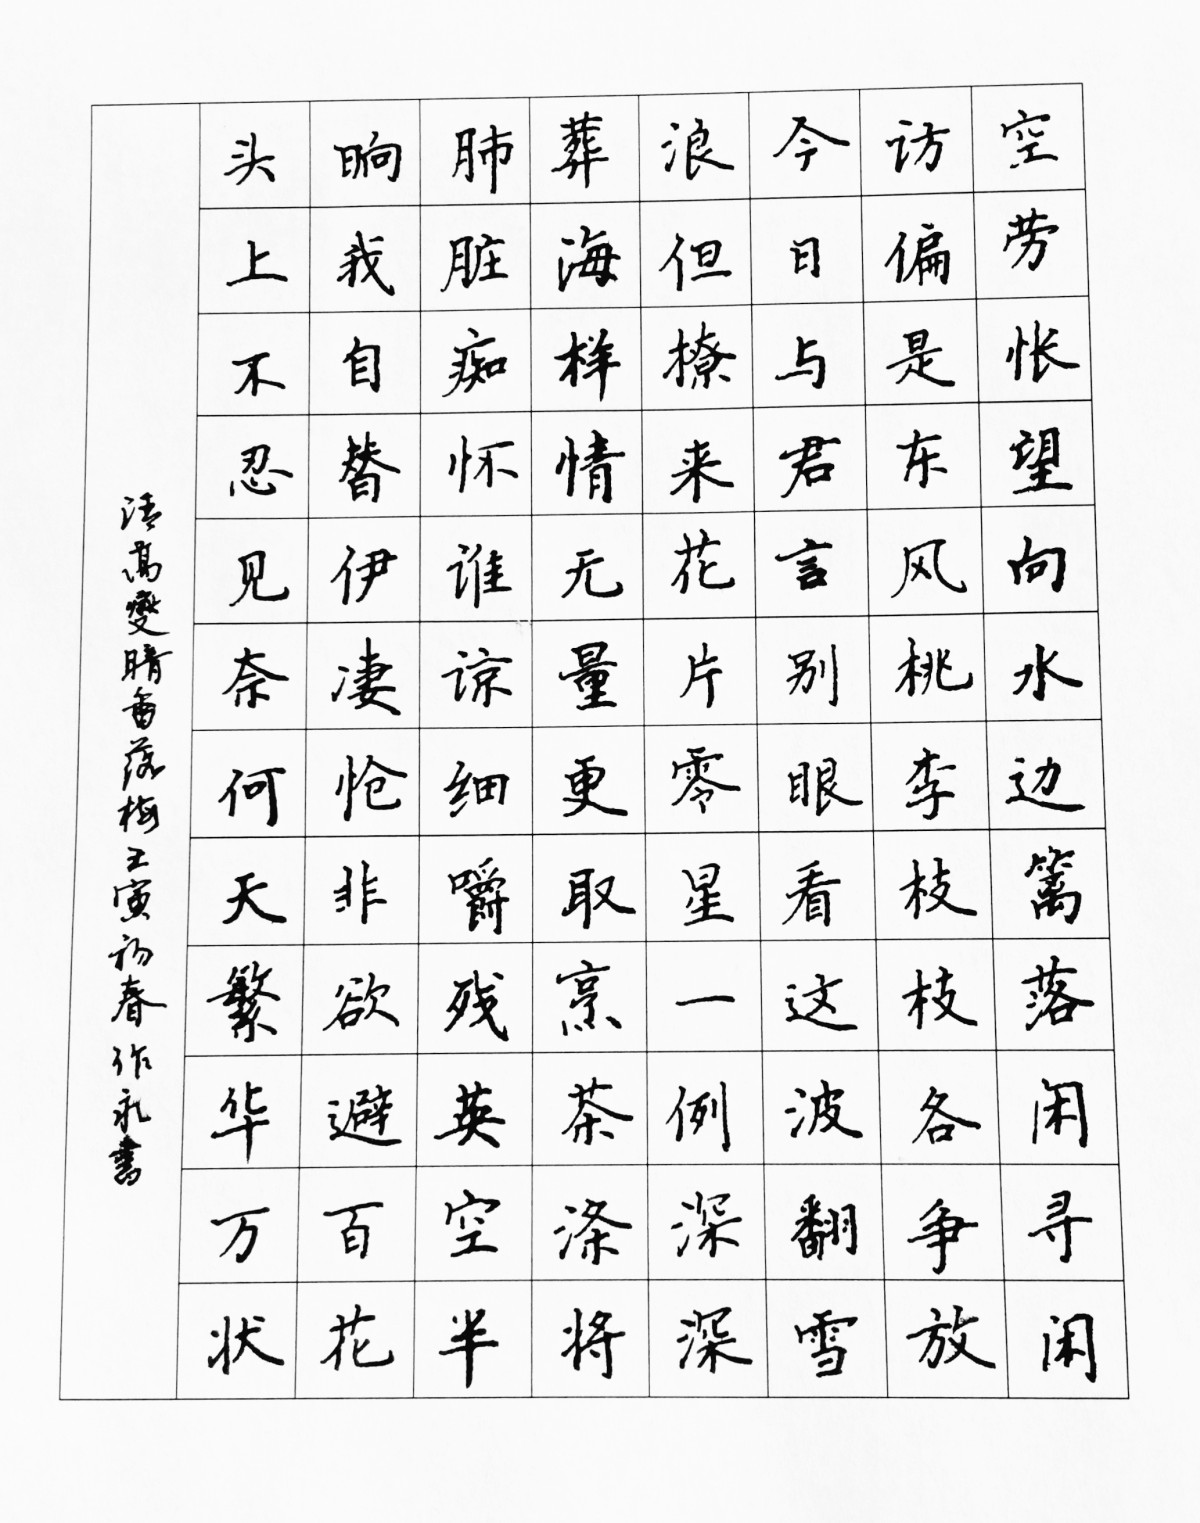 空劳怅望向水边篱落闲寻闲
访偏是东风桃李枝枝各争放
今日与君言别眼看这波翻雪
浪但撩来花片零星一例深深
葬海样情无量更取烹茶涤将
肺脏痴怀谁谅细嚼残英空半
晌我自替伊凄怆非欲避百花
头上不忍见奈何天繁华万状
清高燮暗香落梅壬寅初春作永书